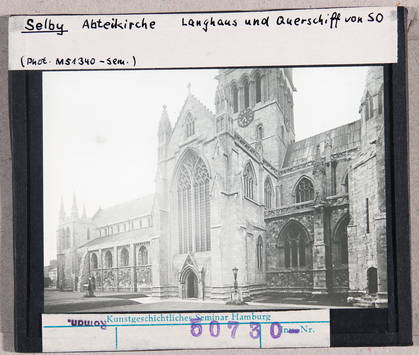 Selby Abteikirche Langhaus und Querschiff von SO
(Phot. MS1340-Sem.)
Kunstgeschichtliches Seminar Hamburg
Roman.
60730 Inv. Nr.